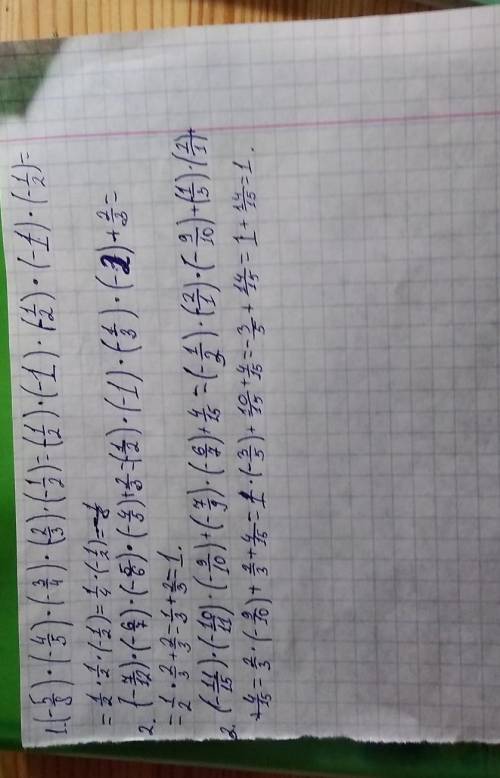 1. (-5/8) · (-4/5) · (-3/4) · (-2/3) · (-1/2) = (-1/2) · (-1) · (-1/2) · (-1) · (-1/2) =
= 1/2 · 1/2 · (-1/2) = 1/4 · (-1/2) = -1/8
2. (-7/12) · (-6/7) · (-5/6) · (-4/5) + 2/3 = (-1/2) · (-1) · (-1/3) · (-2) + 2/3 =
= 1/2 · 2/3 + 2/3 = 1/3 + 2/3 = 1.
3. (-11/15) · (-10/11) · (-9/10) + (-7/9) · (-6/7) + 4/15 = (-1/3) · (-2/1) · (-9/10) + (-1/3) · (-2/1) +
+ 4/15 = 2/3 · (-9/10) + 2/3 + 4/15 = 1 · (-3/5) + 10/15 + 4/15 = -3/5 + 14/15 = 1 + 14/15 = 1.